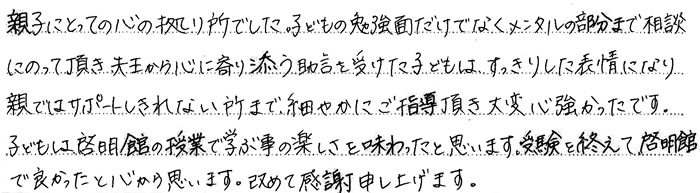 親子にとっての心の拠り所でした。子どもの勉強面だけでなくメンタルの部分まで相談
にのって頂き先生から心に寄り添う助言を受けた子どもは、すっきりした表情になり
親ではサポートしきれない所まで細やかにご指導頂き大変心強かったです。
子どもは啓明館の授業で学ぶ事の楽しさを味わったと思います。受験を終えて、啓明館
で良かったと心から思います。改めて感謝申し上げます。